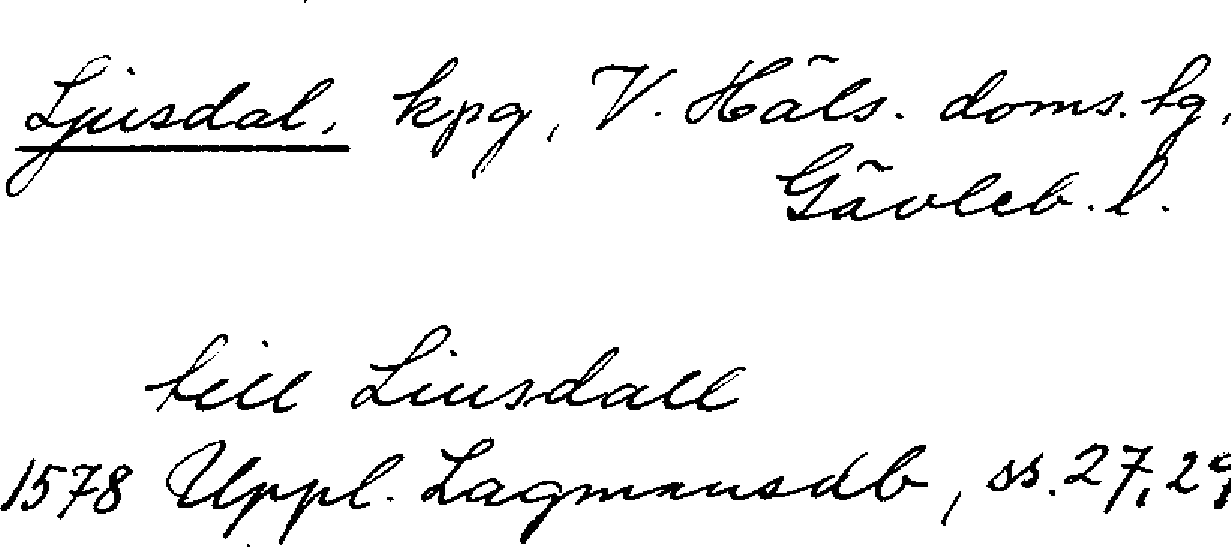 Ljusdal, kpg, V. Häls. doms. hg,
Gävleb. l.
till Liusdall
1578 Uppl. Lagmansdb, ss. 27, 29